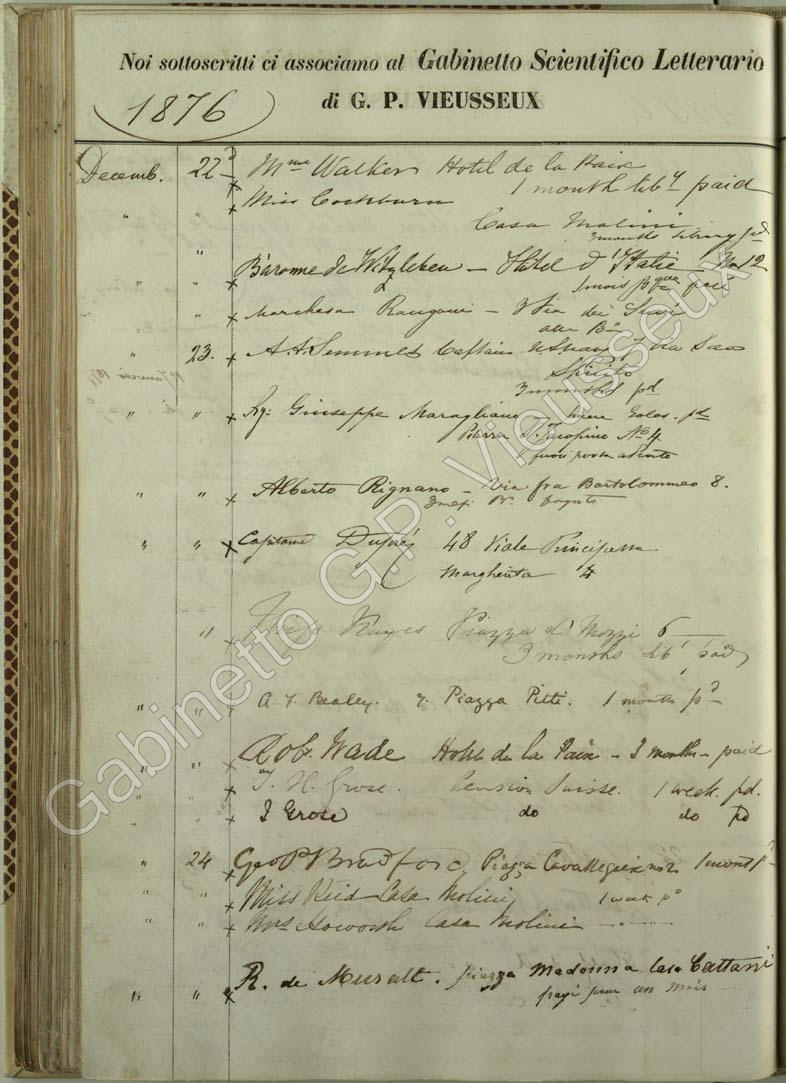 Noi sottoscritti ci associamo al Gabinetto Scientifico Letterario
di G. P. VIEUSSEUX
1876
Decemb. 22 x Mme Walker Hotel de la Paix
1 month liby paid
" " x Miss Cockburn
Casa Molini
3 months library pd
" x Baronne de Witzleben — Hotel d'Italie No 12
1 mois paié
" " x Marchesa Rangoni — 3 Via dei
23. x A. A. Semmes Captain Via San
Spirito
3 months pd
" " x Sig: Giuseppe Maragliano
Piazza S. Jacopino No 4
fuori porta
" " x Alberto Rignano — Via fra Bartolommeo 8.
3 mesi pagato
" " x Capitano Dupré 48 Viale Principessa
Margherita
" x Hayes Piazza d' Mozzi 6
3 months lib paid
" " x A. F. Bealey. 7. Piazza Pitti. 1 month pd
" " x Rob. Wade Hotel de la Paix — 3 months — paid
" " x T. H. Grose. Pension Suisse. 1 week. pd.
x J Grose do do pd
" 24 x Geo P Bradford, Piazza Cavalleggieri no 2 1 mont pd
" " x Miss Reid Casa Molini 1 week pd
" " x Mrs Howorth Casa Molini " "
" " x R. de Muralt. piazza Madonna Casa Cattani
payé pour un mois
Gabinetto G.P. Vieusseux